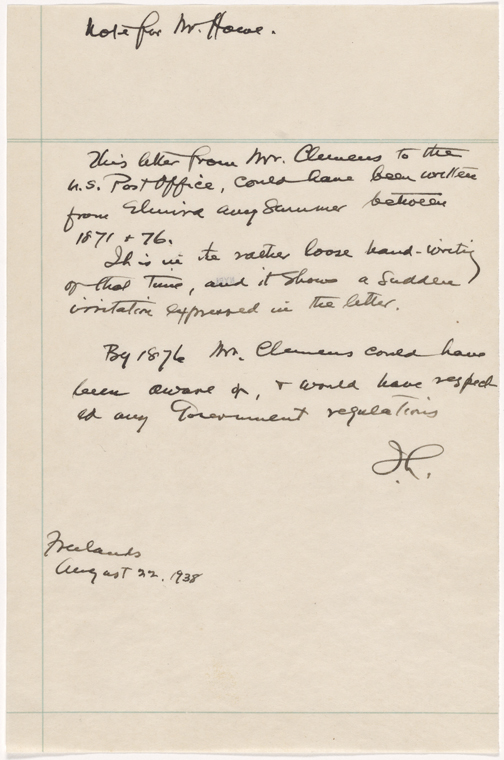 Note for Mr. Howe.
This letter from Mr. Clemens to the
U.S. Post Office, could have been written
from Elmira any Summer between
1871 + 76.
It is in the rather loose hand-writing
of that time, and it shows a sudden
irritation expressed in the letter.
By 1876 Mr. Clemens could have
been aware of, + would have respect
ed any Government regulations
Freelands
August 22. 1938